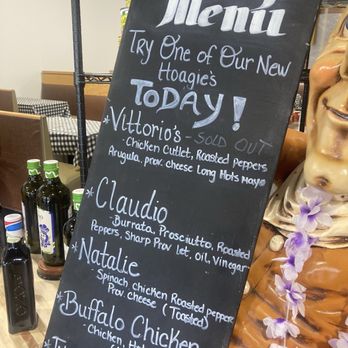 Menu
Try One of Our New
Hoagie's
TODAY!
*Vittorio's - SOLD OUT
- Chicken Cutlet, Roasted Peppers
Arugula, prov. cheese Long Hots Mayo
*Claudio
- Burrata, Prosciutto, Roasted
Peppers, Sharp Prov let, oil, Vinegar
*Natalie
- Spinach chicken Roasted peppers
Prov cheese (Toasted)
*Buffalo Chicken
- Chicken, Hot